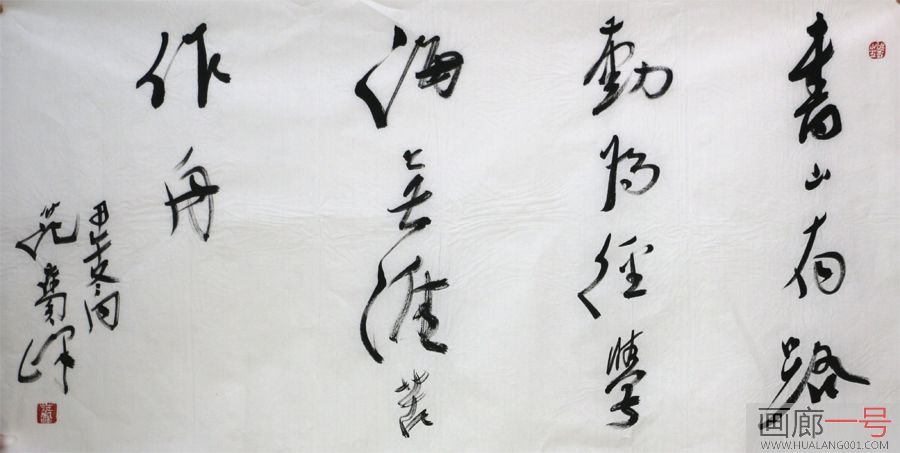 書山有路
勤為徑學
海無涯苦
作舟
甲午冬
范
画廊一号
WWW.HUALANG001.COM